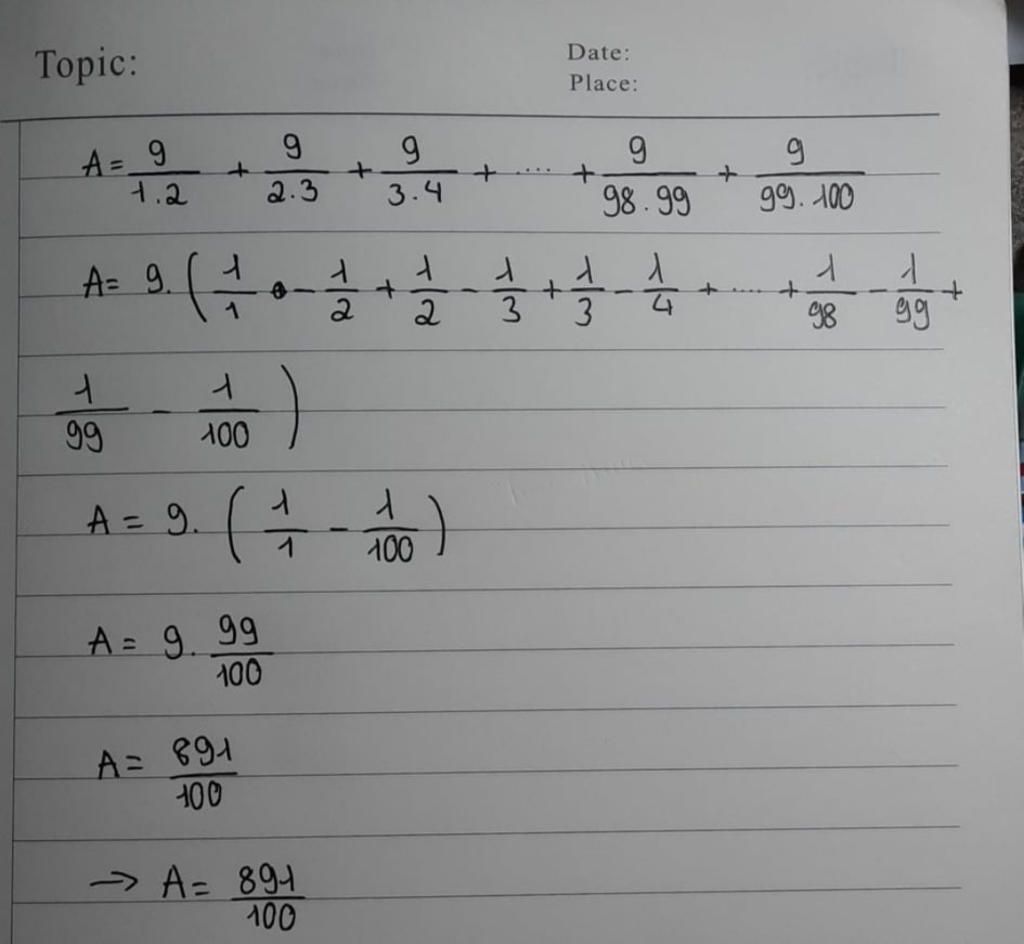 Topic:
Date:
Place:
A = 9/1.2 + 9/2.3 + 9/3.4 + .... + 9/98.99 + 9/99.100
A = 9. (1/1 - 1/2 + 1/2 - 1/3 + 1/3 - 1/4 + .... + 1/98 - 1/99 +
1/99 - 1/100)
A = 9. (1/1 - 1/100)
A = 9. 99/100
A = 891/100
→ A = 891/100